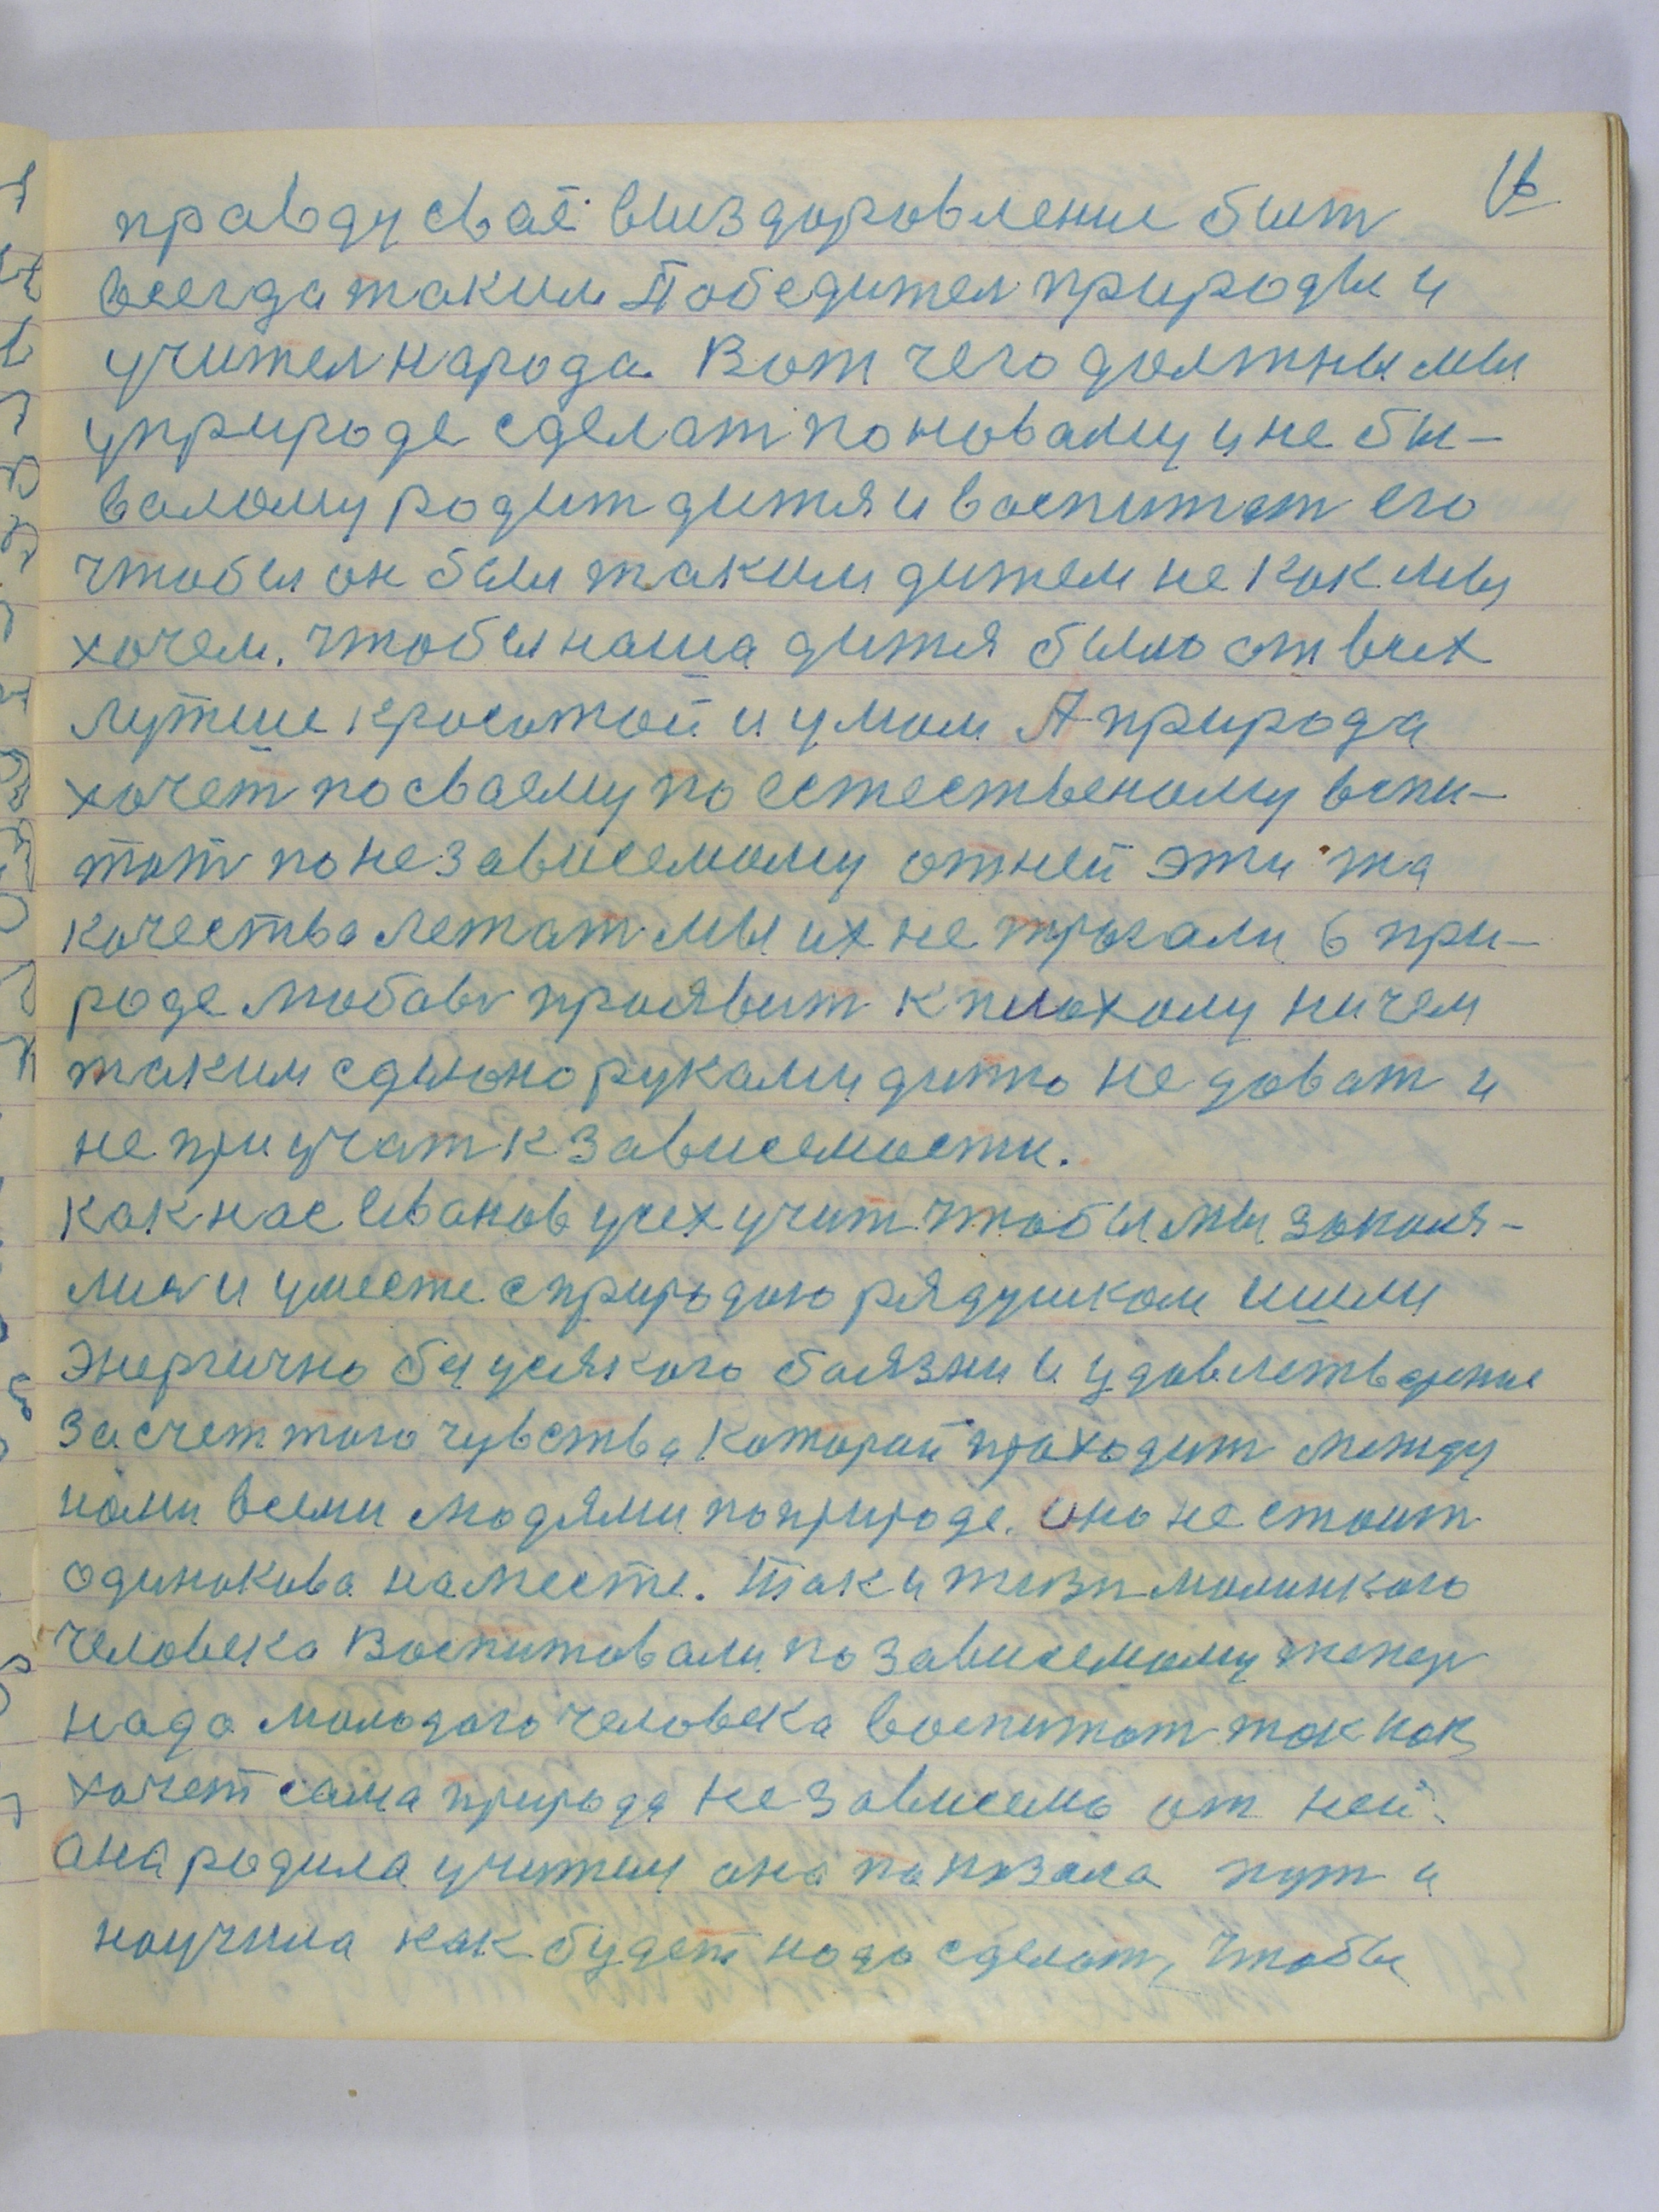 16
правду сваё выиздоровление быт
всегда таким Победител природы и
учител народа. Вот чего должны мы
уприроде сделат по новаму и не бы-
валому родит дитя и воспитат его
чтобы он был таким дитем не как мы
хочем. чтобы наша дитя было от всех
лутше красотой и умом А природа
хочет по сваему по естественому вспи-
тат по не зависемому от ней эти жа
качества лежат мы их не трогали в при-
роде любавь проявит к плохому ничем
таким сдионо руками дитю не доват и
не приучат к зависемости.
как нас Иванов усех учит чтобы мы закаля-
лись и умести с природою рядушком ишли
энергично без усякого боязни и удовлетворение
за счет того чувства каторай праходит между
нами всеми людями по природе. оно не стоит
одинокова на месте. Так и жизн малинкого
человека Воспитовали по зависемому типер
надо молодого человека воспитат так как
хочет сама природа не зависемо от ней.
она родила учитиля она паказала пут и
научила как будет надо сделат, чтобы